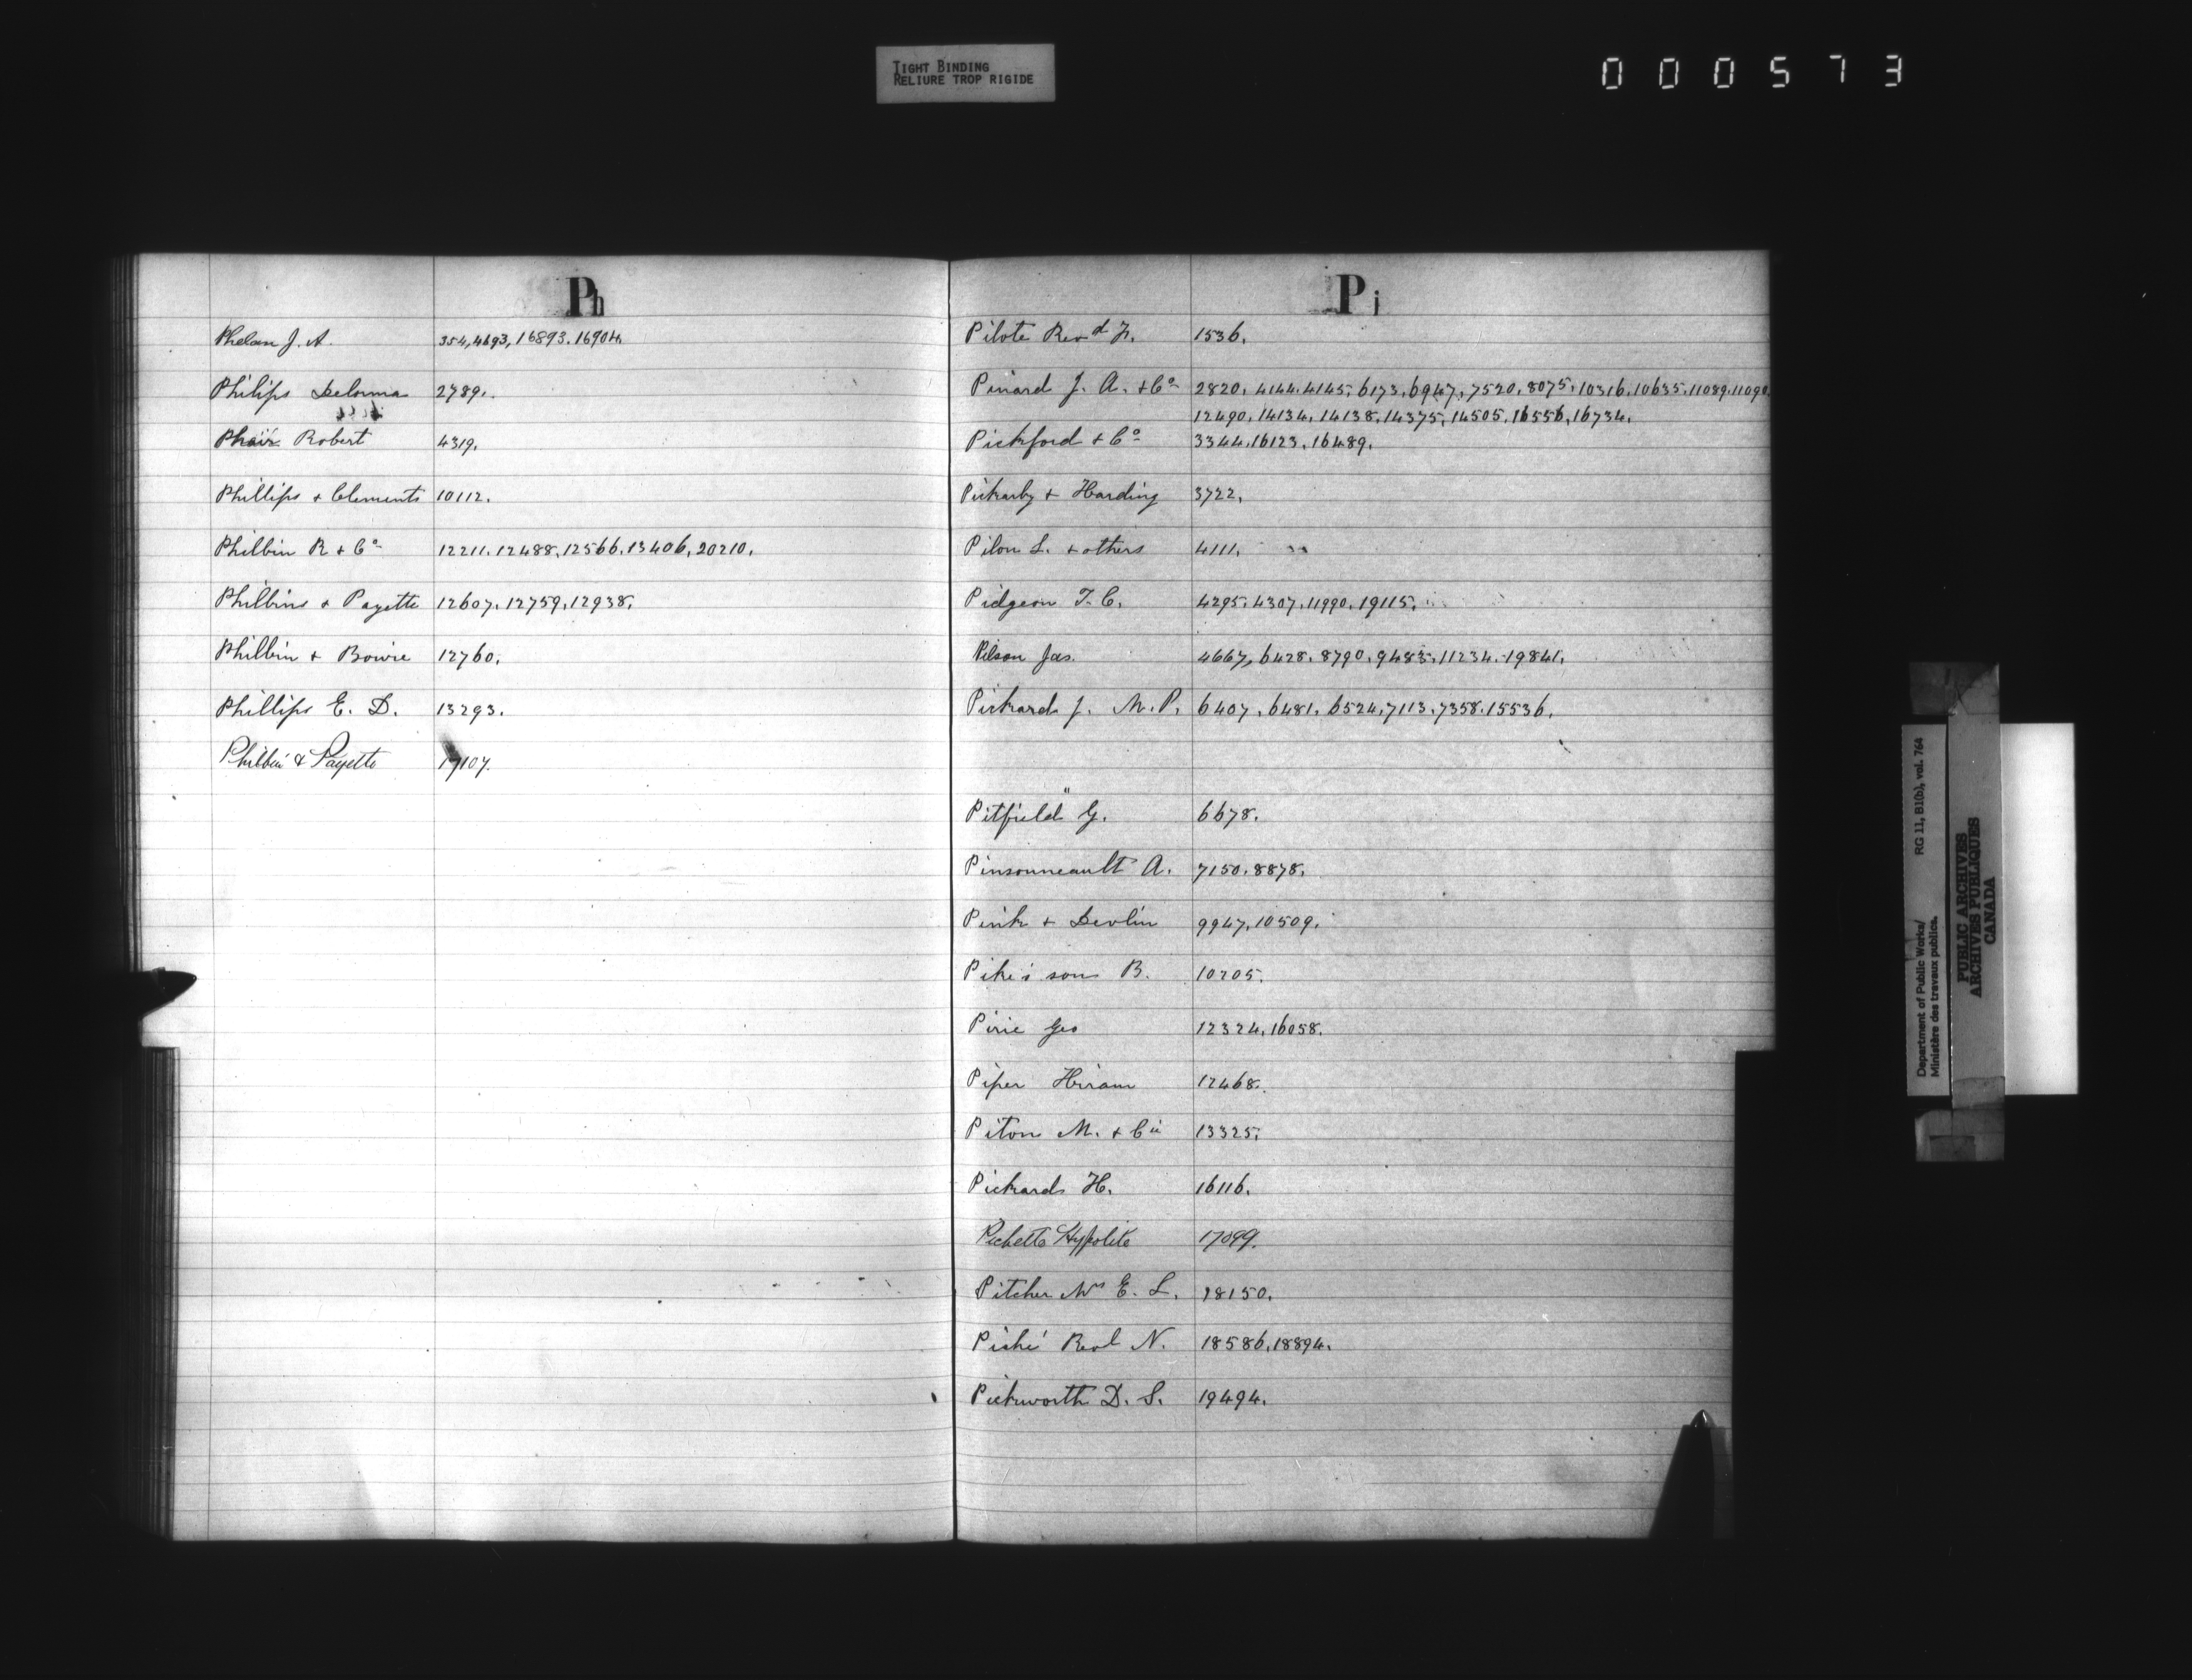 TIGHT BINDING
RELIURE TROP RIGIDE
000573
Ph
Phelan J. A. 354, 4693, 16893, 16904.
Philips Delorma 2789.
Phair Robert 4319.
Phillips & Clements 10112.
Philbin R & Co 12211, 12488, 12566, 13406, 20210.
Philbins & Payette 12607, 12759, 12938.
Philbin & Bowie 12760.
Phillips E. D. 13293.
Philbin & Payette 17107.
Pi
Pilote Revd F. 1536.
Pinard J. A. & Co 2820, 4144, 4145, 6173, 6947, 7520, 8075, 10316, 10635, 11089, 11090.
12490, 14134, 14138, 14375, 14505, 16556, 16734.
Pickford & Co 3344, 16123, 16489.
Pickarby & Harding 3722.
Pilon L. & others 4111.
Pidgeon T. C. 4295, 4307, 11990, 19115.
Pilson Jas. 4667, 6428, 8790, 9483, 11234, 19841.
Pickard J. M.P. 6407, 6481, 6524, 7113, 7358, 15536.
Pitfield G. 6678.
Pinsonneault A. 7150, 8878.
Pink & Devlin 9947, 10509.
Pike's sons B. 10205.
Pirie Geo 12324, 16058.
Piper Hiram 12468.
Piton M. & Cie 13325.
Pickards H. 16116.
Pichette Hypolite 17099.
Pitcher Mrs E. L. 18150.
Piché Revd N. 18586, 18894.
Pickworth D. S. 19494.
Department of Public Works/ RG 11, B1(b), vol. 764
Ministère des travaux publics.
PUBLIC ARCHIVES
ARCHIVES PUBLIQUES
CANADA